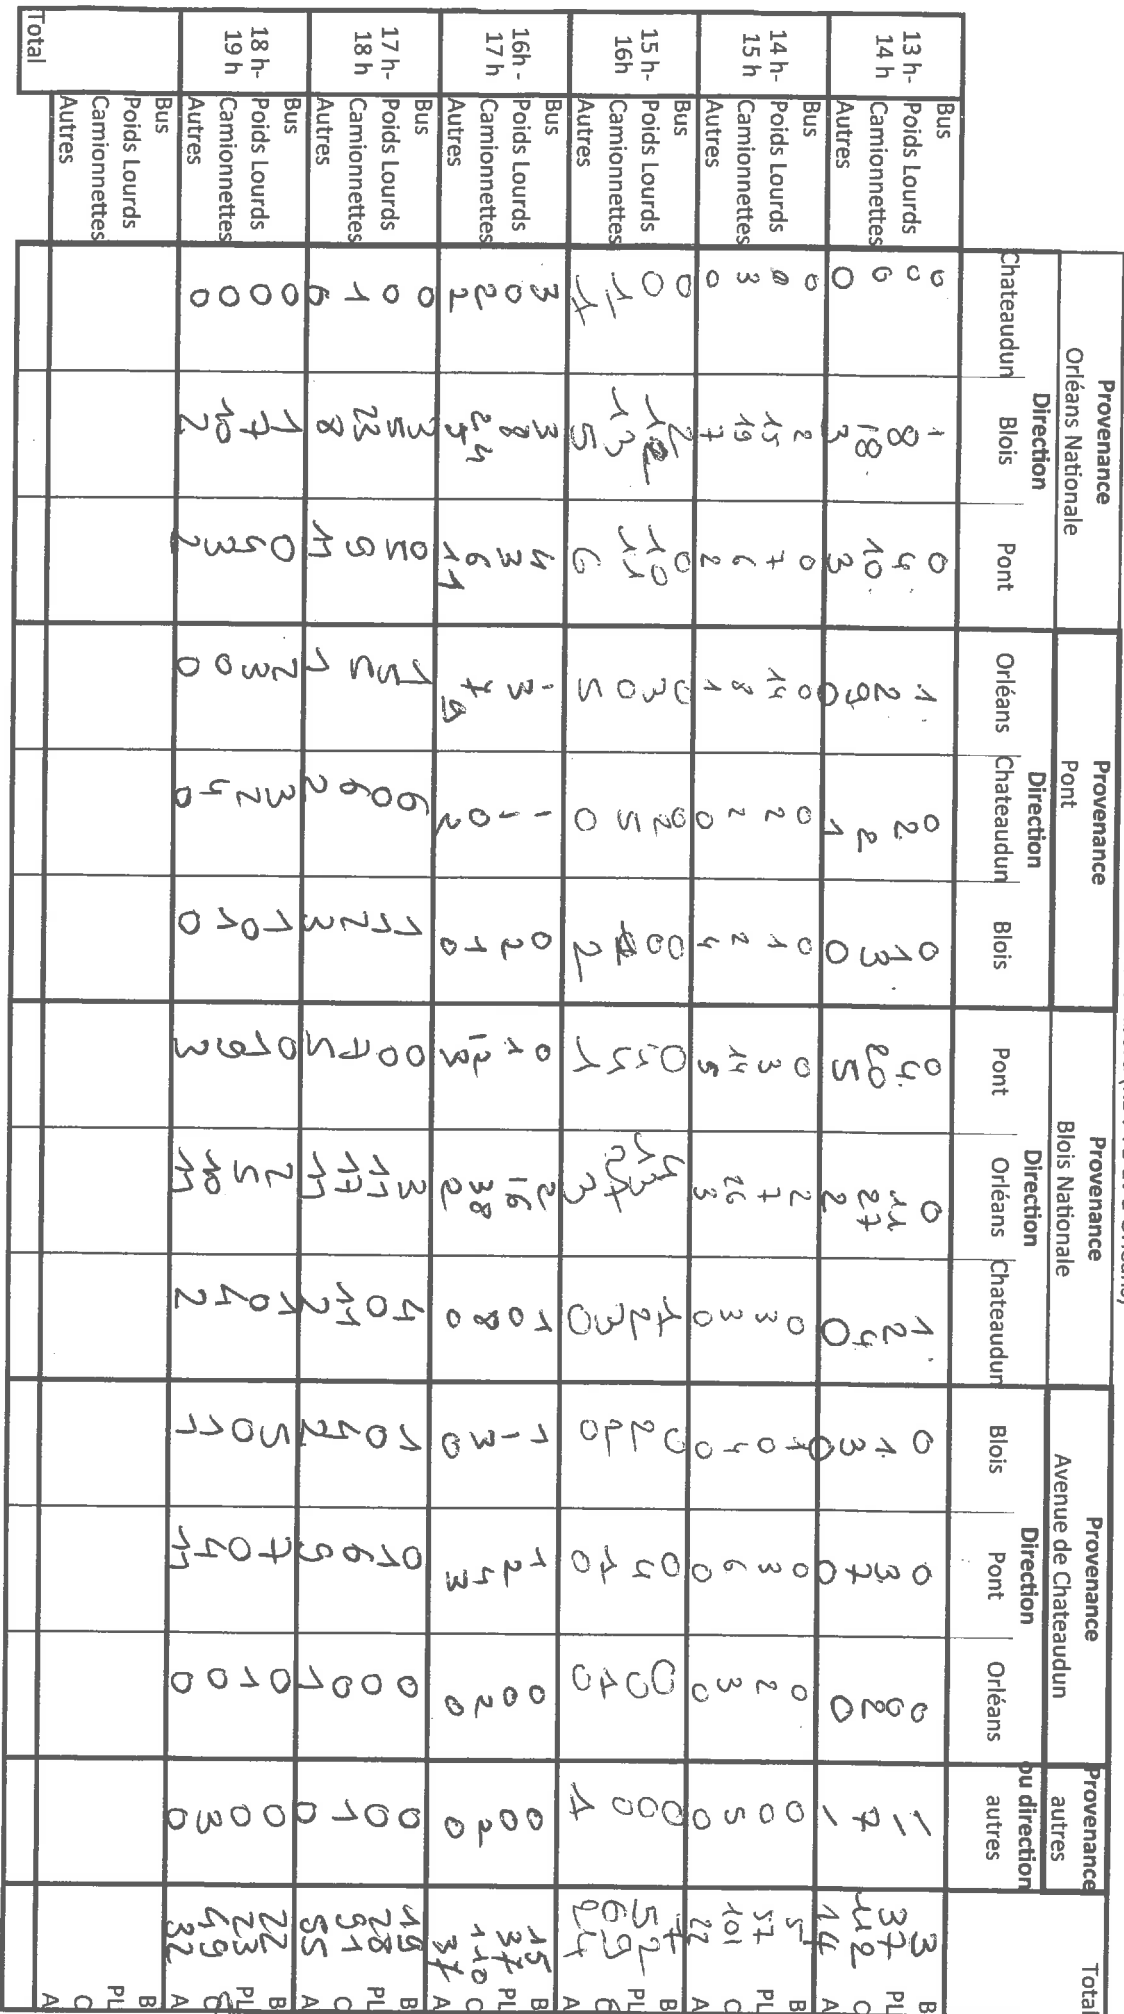 Provenance Provenance Provenance Provenance Provenance Total
Orléans Nationale Pont Blois Nationale Avenue de Chateaudun autres
Direction Direction Direction Direction ou direction
Chateaudun Blois Pont Orléans Chateaudun Blois Pont Orléans Chateaudun Blois Pont Orléans autres
13 h-14 h
Bus 0 1 0 1 0 0 0 0 1 0 0 0 1 3 B
Poids Lourds 0 8 4 2 2 1 4 11 2 1 3 0 1 37 PL
Camionnettes 6 18 10 9 2 3 20 27 4 3 7 2 7 112 C
Autres 0 3 3 0 1 0 5 2 0 0 0 0 1 14 A
14 h-15 h
Bus 0 2 0 0 0 0 0 2 0 1 0 0 0 5 B
Poids Lourds 0 15 7 14 2 1 3 7 3 0 3 2 0 57 PL
Camionnettes 3 19 6 8 2 2 14 26 3 4 6 3 5 101 C
Autres 0 7 2 1 0 4 5 3 0 0 0 0 0 22 A
15 h-16h
Bus 0 2 0 0 0 0 0 4 1 0 0 0 0 7 B
Poids Lourds 0 12 10 3 2 0 13 2 2 4 0 0 52 PL
Camionnettes 13 11 0 5 5 27 3 2 1 0 69 C
Autres 1 5 6 5 0 2 1 3 0 0 0 0 1 24 A
16h - 17 h
Bus 3 3 4 - - 0 0 2 1 1 1 0 0 15 B
Poids Lourds 0 8 3 3 1 2 1 16 0 - 2 0 0 37 PL
Camionnettes 2 24 6 7 0 1 12 38 8 3 4 2 2 110 C
Autres 2 5 11 9 2 0 3 2 0 0 3 0 0 37 A
17 h-18 h
Bus 0 3 0 1 6 1 0 3 4 1 0 0 0 19 B
Poids Lourds 0 5 5 5 0 1 0 11 0 0 1 0 0 28 PL
Camionnettes 1 23 9 5 6 2 7 17 11 1 6 0 1 91 C
Autres 6 8 11 1 2 3 5 11 2 2 5 1 0 55 A
18 h-19 h
Bus 0 1 0 2 3 1 0 2 1 5 7 0 0 22 B
Poids Lourds 0 7 5 3 2 0 1 5 0 0 0 1 0 23 PL
Camionnettes 0 10 3 0 4 1 9 10 1 1 1 0 3 49 C
Autres 0 2 2 0 0 0 3 11 2 1 11 0 0 32 A
Bus B
Poids Lourds PL
Camionnettes C
Autres A
Total